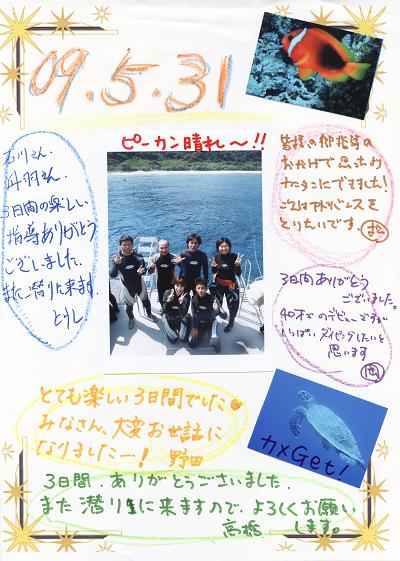 09.5.31
ピーカン晴れ〜!!
石川さん.
丹羽さん.
3日間の楽しい
指導ありがとう
ございました.
また、潜りに来ます.
とりし
皆様の御指導の
おかげで思ったより
カンタンにできました!
次はアドバンスを
とりたいです。
3日間ありがとう
ございました。
40才でのデビューですが
いっぱいダイビングしたいと
思います
岡
とても楽しい3日間でした
みなさん、大変お世話に
なりましたー!
野田
カメGet!
3日間、ありがとうございました。
また潜りに来ますので、よろしくお願い
します。
高橋